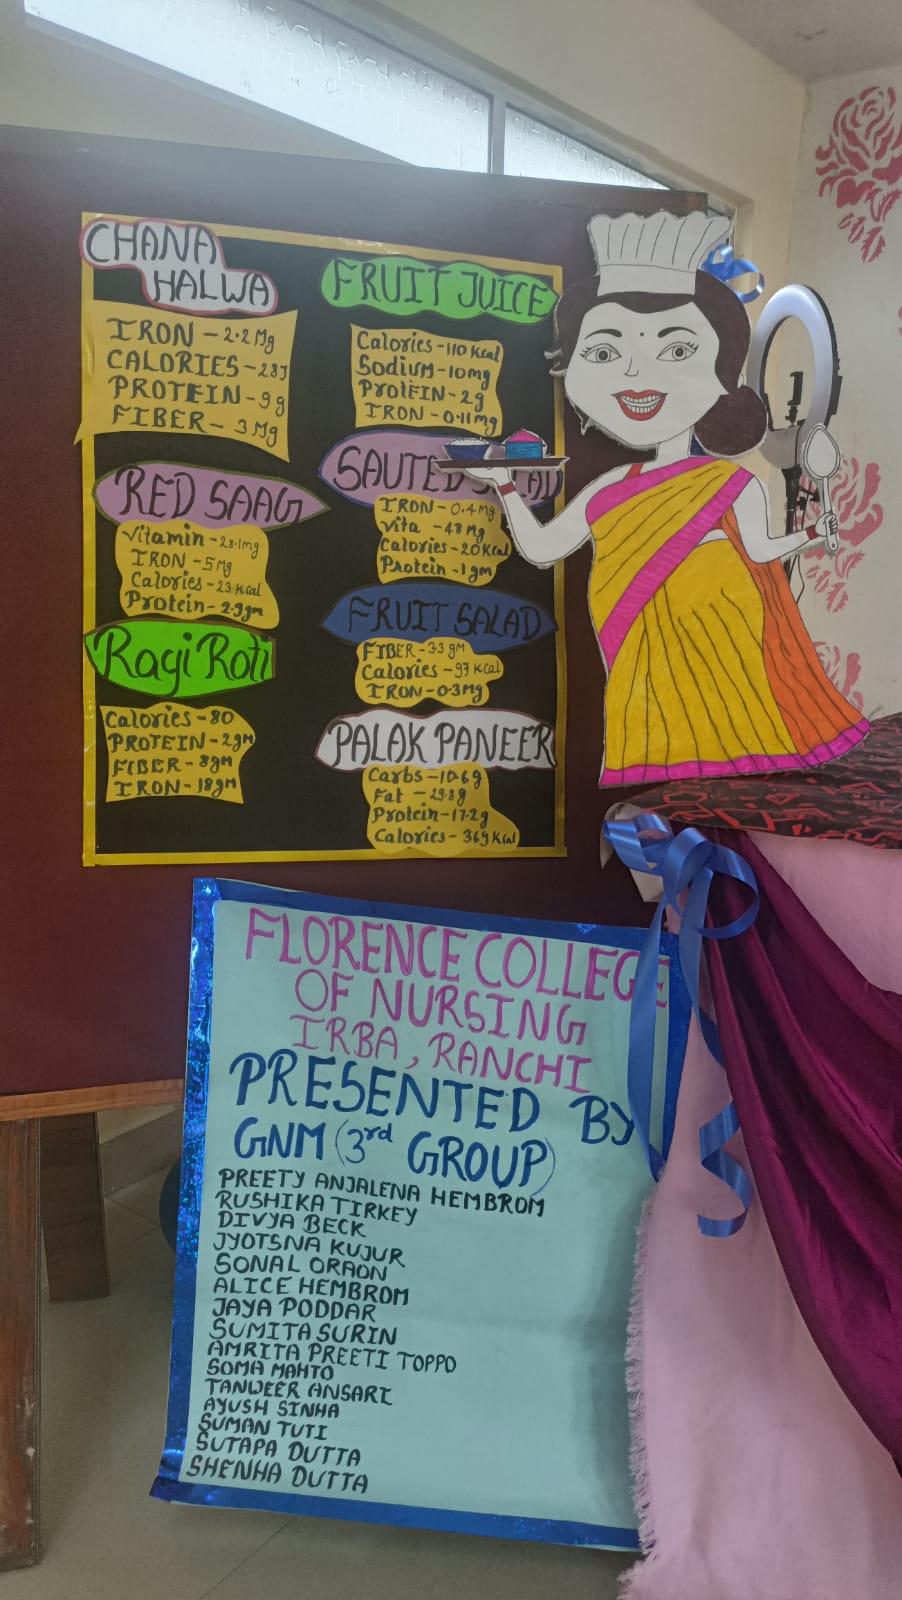 CHANA
HALWA
IRON - 2.2 Mg
CALORIES - 287
PROTEIN - 9 g
FIBER - 3 Mg
RED SAAG
Vitamin - 28.1mg
IRON - 5 Mg
Calories - 23 Kcal
Protein - 2.9 gm
Ragi Roti
Calories - 80
PROTEIN - 2gm
FIBER - 8gm
IRON - 18gm
FRUIT JUICE
Calories - 110 Kcal
Sodium - 10mg
Protein - 2g
IRON - 0.11mg
SAUTED
IRON - 0.4 Mg
Vita - 48 Mg
Calories - 20 Kcal
Protein - 1 gm
FRUIT SALAD
FIBER - 3.3 gM
Calories - 97 Kcal
IRON - 0.3Mg
PALAK PANEER
Carbs - 10.6g
Fat - 29.8 g
Protein - 17.2 g
Calories - 369 Kcal
FLORENCE COLLEGE
OF NURSING
IRBA, RANCHI
PRESENTED BY
GNM (3rd GROUP)
PREETY ANJALENA HEMBROM
RUSHIKA TIRKEY
DIVYA BECK
JYOTSNA KUJUR
SONAL ORAON
ALICE HEMBROM
JAYA PODDAR
SUMITA SURIN
AMRITA PREETI TOPPO
SOMA MAHTO
TANWEER ANSARI
AYUSH SINHA
SUMAN TUTI
SUTAPA DUTTA
SHENHA DUTTA